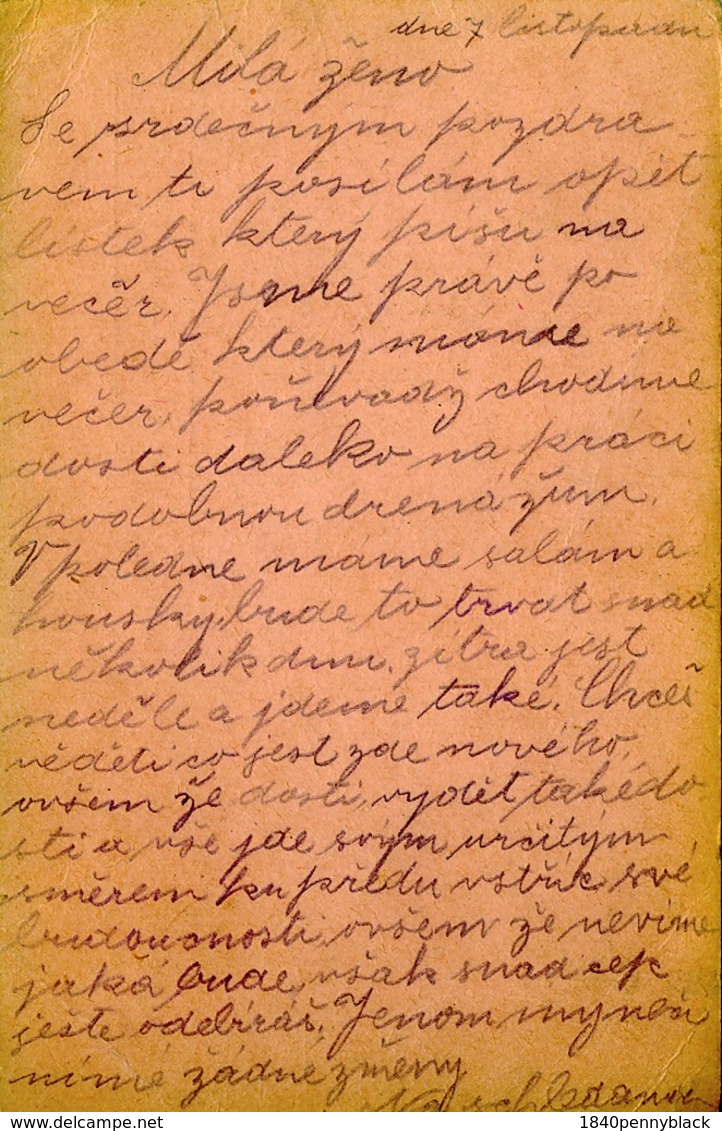 dne 7 listopadu
Milá ženo
Se srdečným pozdra-
vem ti posílám opět
lístek který píšu na
večer. Jsme právě po
obedě který máme na
večer, poňevadž chodíme
dosti daleko na práci
podobnou drenážím.
V poledne máme salám a
housky, bude to trvat snad
několik dnu. zítra jest
neděle a jdeme také. Chceš
věděti co jest zde nového,
ovšem že dosti, vydět také do-
sti a vše jde svým určitým
směrem ku předu vstříc své
budoucnosti, ovšem že nevíme
jaká bude, však snad
ješte odebíráš. Jenom my neči
níme žádné změny
Na schledanou
delcampe.net
1840pennyblack